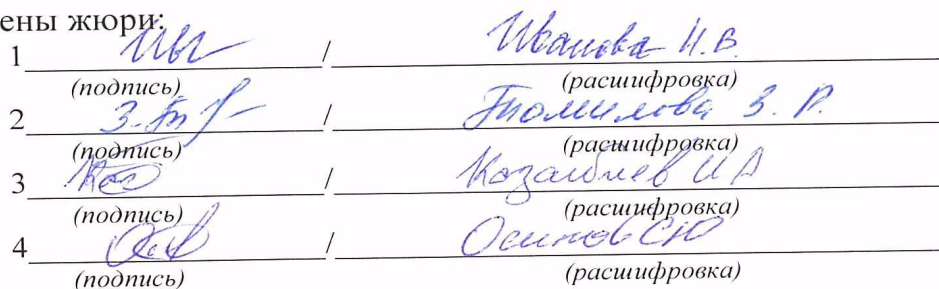 ены жюри:
1 / Иванова Н.В.
(подпись) (расшифровка)
2 / Томилова З. Р.
(подпись) (расшифровка)
3 / И А
(подпись) (расшифровка)
4 / Осипов СЮ
(подпись) (расшифровка)